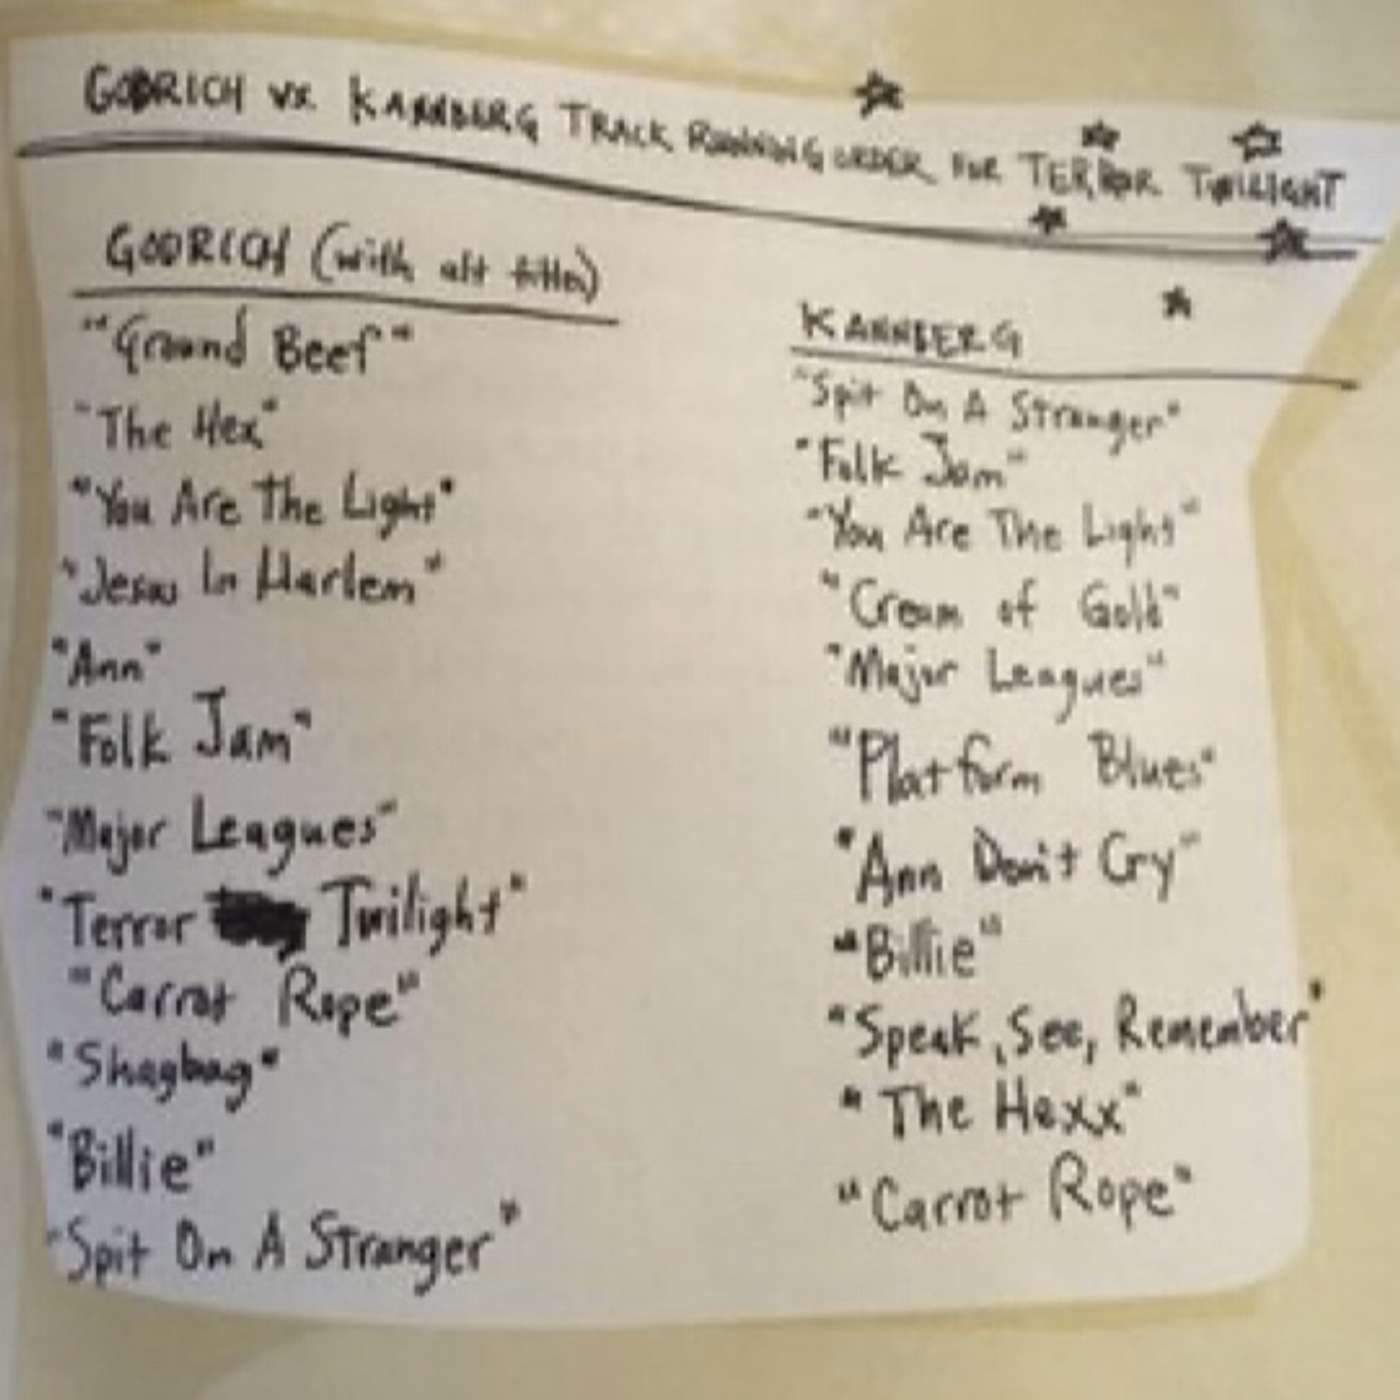 GODRICH vs. KANNBERG TRACK RUNNING ORDER FOR TERROR TWILIGHT
GODRICH (with alt titles)
"Ground Beef"
"The Hex"
"You Are The Light"
"Jesus In Harlem"
"Ann"
"Folk Jam"
"Major Leagues"
"Terror Twilight"
"Carrot Rope"
"Shagbag"
"Billie"
"Spit On A Stranger"
KANNBERG
"Spit On A Stranger"
"Folk Jam"
"You Are The Light"
"Cream of Gold"
"Major Leagues"
"Platform Blues"
"Ann Don't Cry"
"Billie"
"Speak, See, Remember"
"The Hexx"
"Carrot Rope"